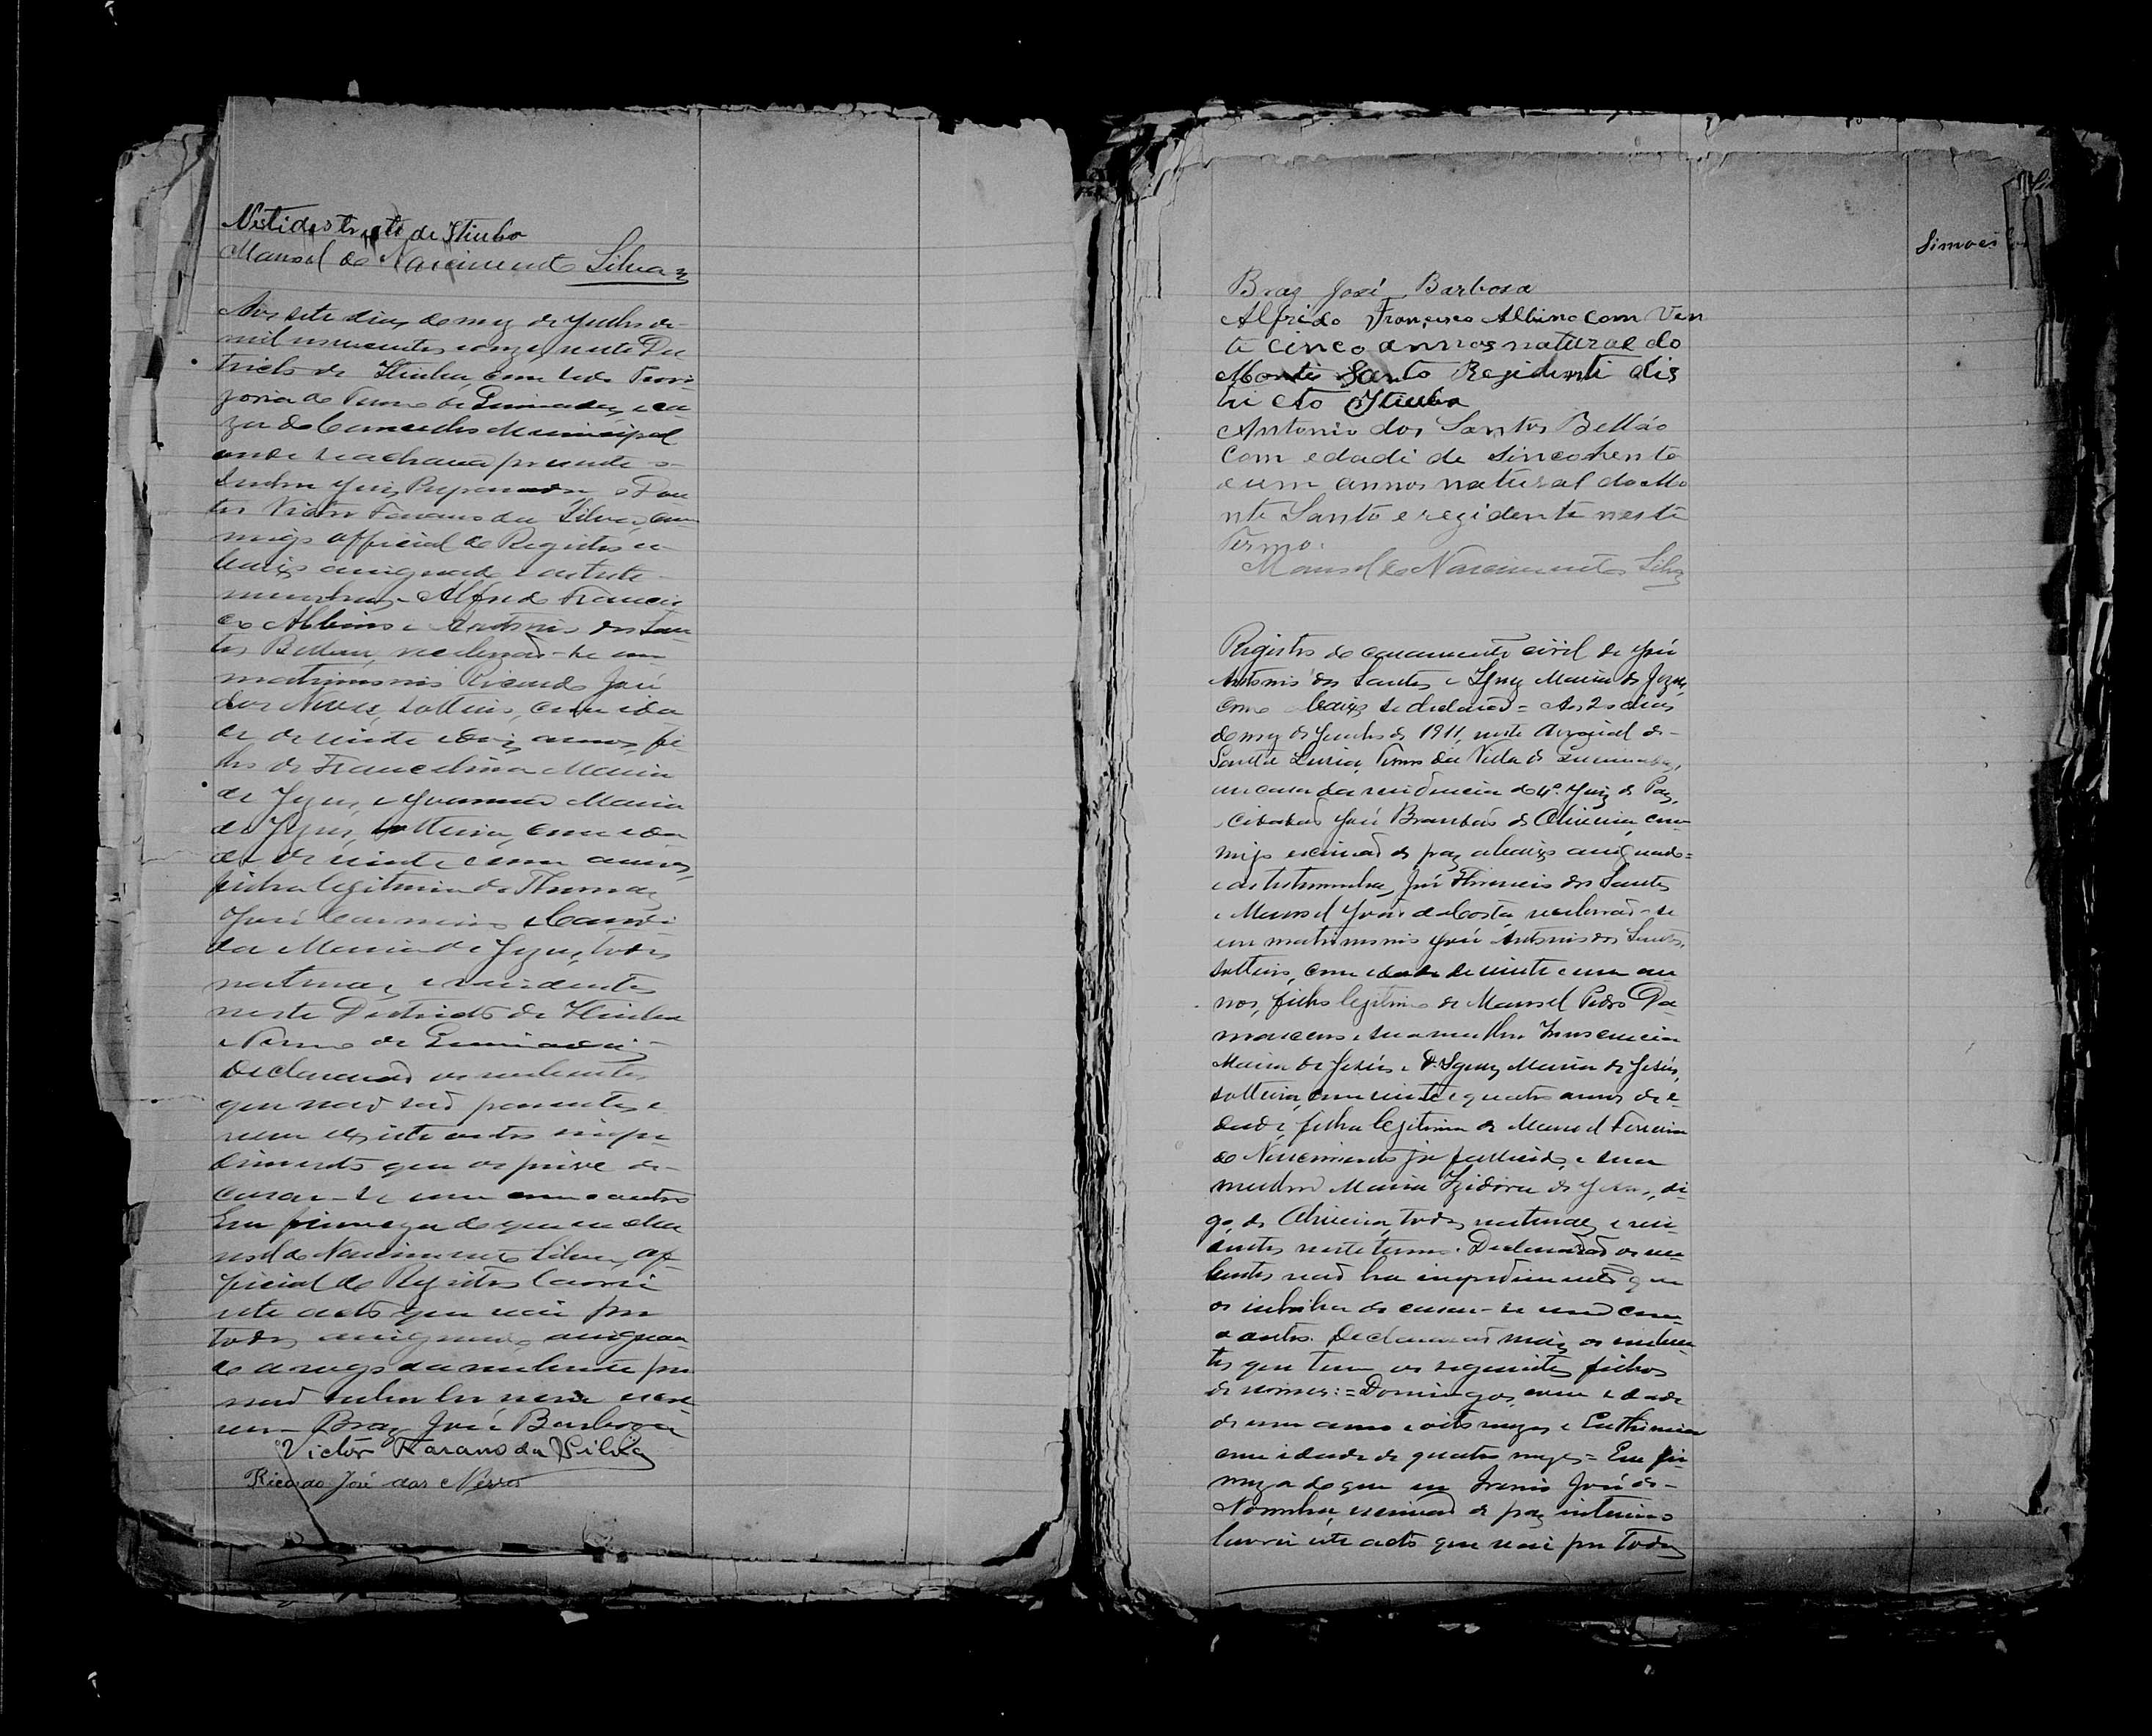 Nesti destrito de Itiuba
Manoel do Nascimento Silva
Aos sete dias do mez de Junho de
mil novecentos e onze, neste Dis
tricto de Itiuba, com sede Provi
zoria do Termo de Queimadas, e ca
za do Conselho Municipal
onde se achava presente o
Senhor Juiz Preparador o Dou
tor Victor Farano da Silva, com
migo official do Registro a-
baixo assignado e as teste-
munhas Alfredo Francis
co Albino e Antonio dos San
tos Bellau, receberão-se em
matrimonio Ricardo José
das Neves, solteiro, com ida
de de vinte e dois annos, fi
lho de Francelina Maria
de Jezus, e Joanna Maria
de Jezus, solteira, com ida
de de vinte e um annos,
filha legitima de Thomaz
José Carneiro e Candi
da Maria de Jezus, todos
naturaes e residentes
neste Destricto de Itiuba
e Termo de Queimadas
Declararão os nubentes,
que não são parentes e
nem existe outro impe
dimento que os prive de
cazar-se um com o outro
Em firmeza do que eu Ma
noel do Nascimento Silva, of
ficial do Registro lavrei
este acto que vai por
todos assignado, assignan
do a rogo da nubente por
não saber ler nem escre
ver Braz José Barboza
Victor Farano da Silva
Ricardo José das Neves
Simoes
Braz José Barbosa
Alfrido Francisco Albino com Vin
te cinco annos natural do
Monti Santo Rezidenti dis
tri cto Itiuba
Antonio dos Santos Bellão
Com edadi de sincohenta
e um annos natural do Mo
nte Santo e rezidente neste
Termo.
Manoel do Nascimento Silva
Registro do casamento civil de José
Antonio dos Santos e Ignez Maria de Jezus,
como abaixo se declarão = Aos 20 dias
do mez de Junho de 1911, neste Arraial de
Santa Luzia, Termo da Villa de Queimadas,
em casa da residencia do 4º Juiz de Paz,
Cidadão José Brandão de Oliveira, com
migo escrivão de paz abaixo assignado =
e as testemunhas, José Florencio dos Santos
e Manoel João da Costa, receberão-se
em matrimonio José Antonio dos Santos,
solteiro, com edade de vinte e um an
nos, filho legitimo de Manoel Pedro Da
masceno e sua mulher Innocencia
Maria de Jesús, e D. Ignez Maria de Jesús,
solteira, com vinte e quatro annos de e-
dade, filha legitima de Manoel Ferreira
do Nascimento já fallecido, e sua
mulher Maria Izidora de Jesus, di
go, de Oliveira, todos naturaes e resi
dentes neste termo. Declararão os nu
bentes não ha impedimento que
os inhiba de casar-se um com
o outro. Declararão mais os nuben
tes que tem os seguintes filhos
de nomes: = Domingos, com edade
de um anno e oito mezes e Euthimia
com idade de quatro mezes = Em fir
meza do que eu José de
Noronha, escrivão de paz interino
lavrei este acto que vai por todos